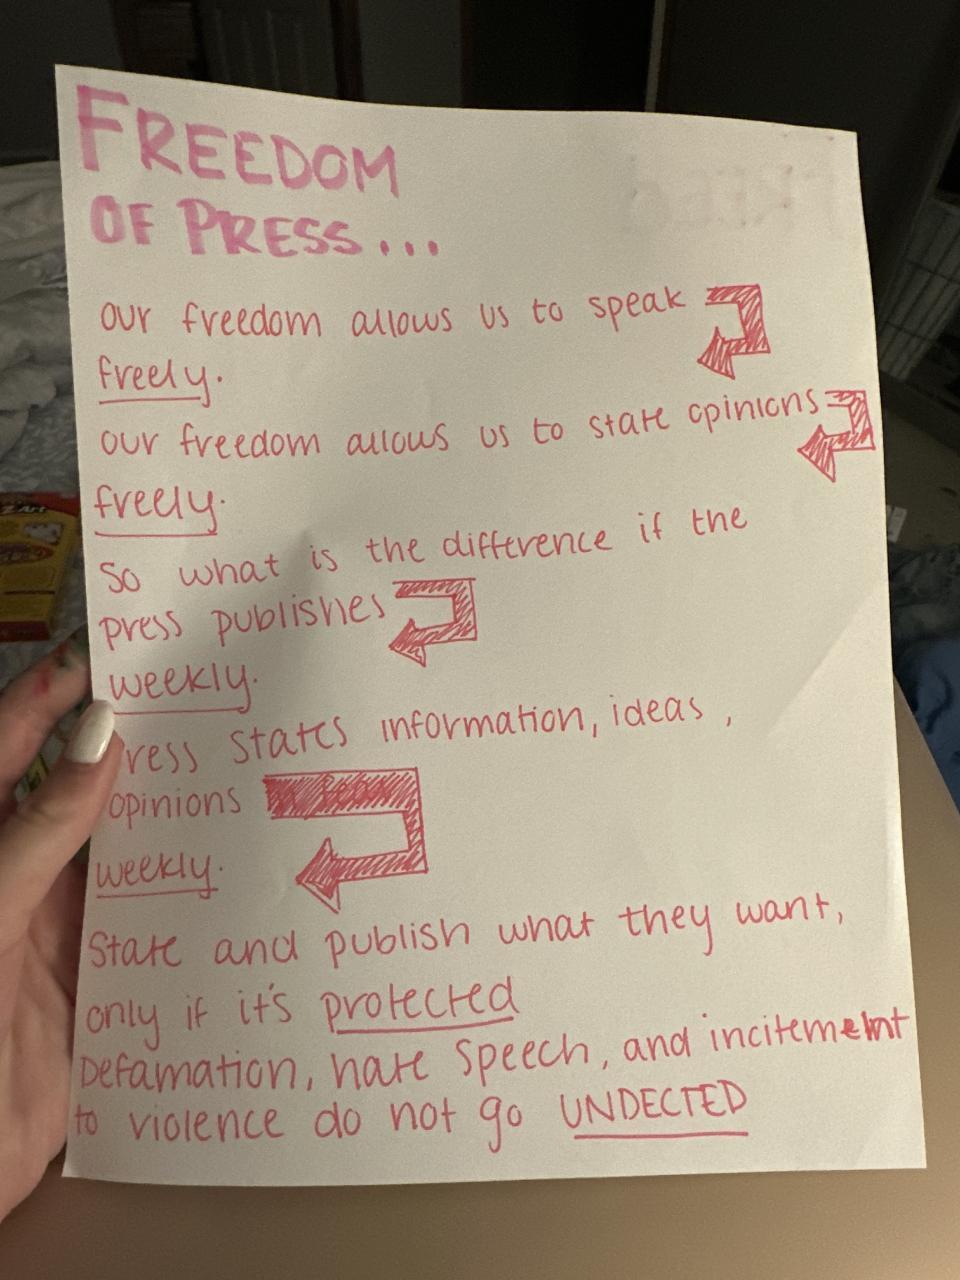 FREEDOM
OF PRESS...
our freedom allows us to speak
freely.
our freedom allows us to state opinions
freely.
So what is the difference if the
press publishes
weekly.
ress states information, ideas,
opinions
weekly.
State and publish what they want,
only if it's protected
Defamation, hate speech, and incitement
to violence do not go UNDECTED